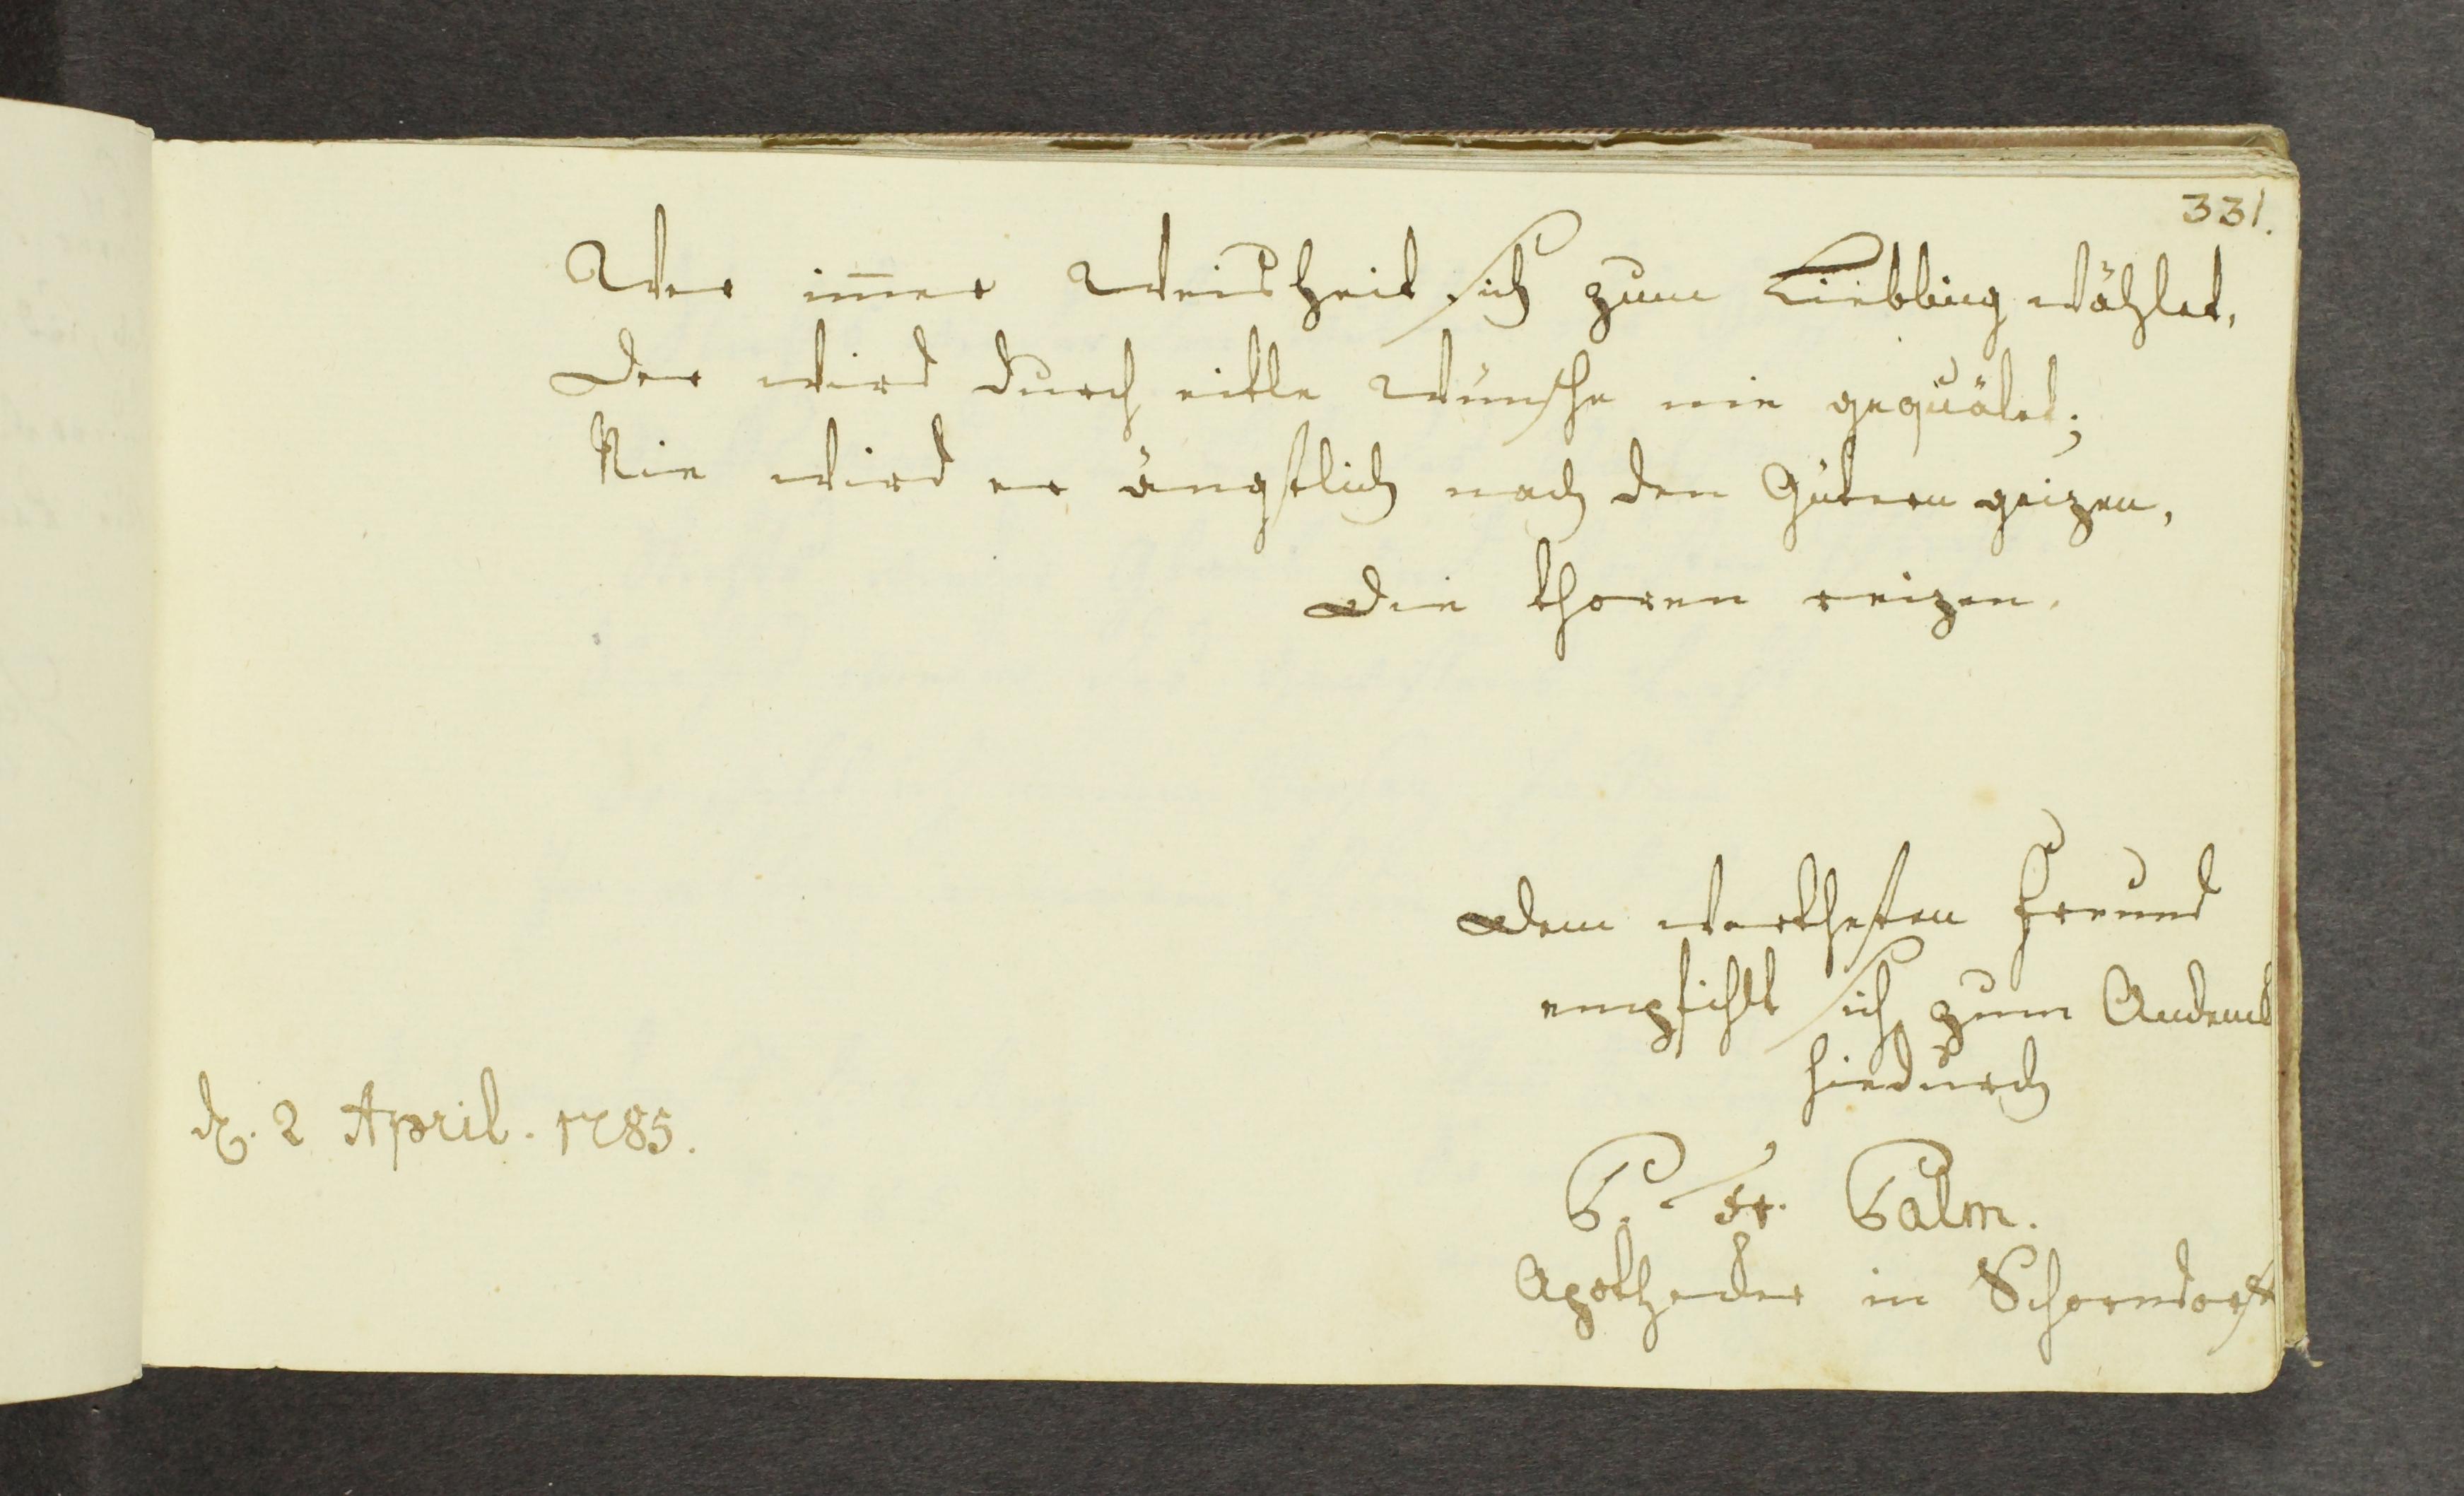 331.
Wer im̅er Weisheit sich zum Liebling wählet,
Der wird durch eitle Wünsche nie gequälet;
Nie wird er ängstlich nach den Gütern geizen,
Die thoren reizen.
Dem werthesten Freund
empfihlt sich zum Andenk
hiedurch
d. 2 April. 1785.
P. Fr. Palm.
Apothecker in Schorndorf